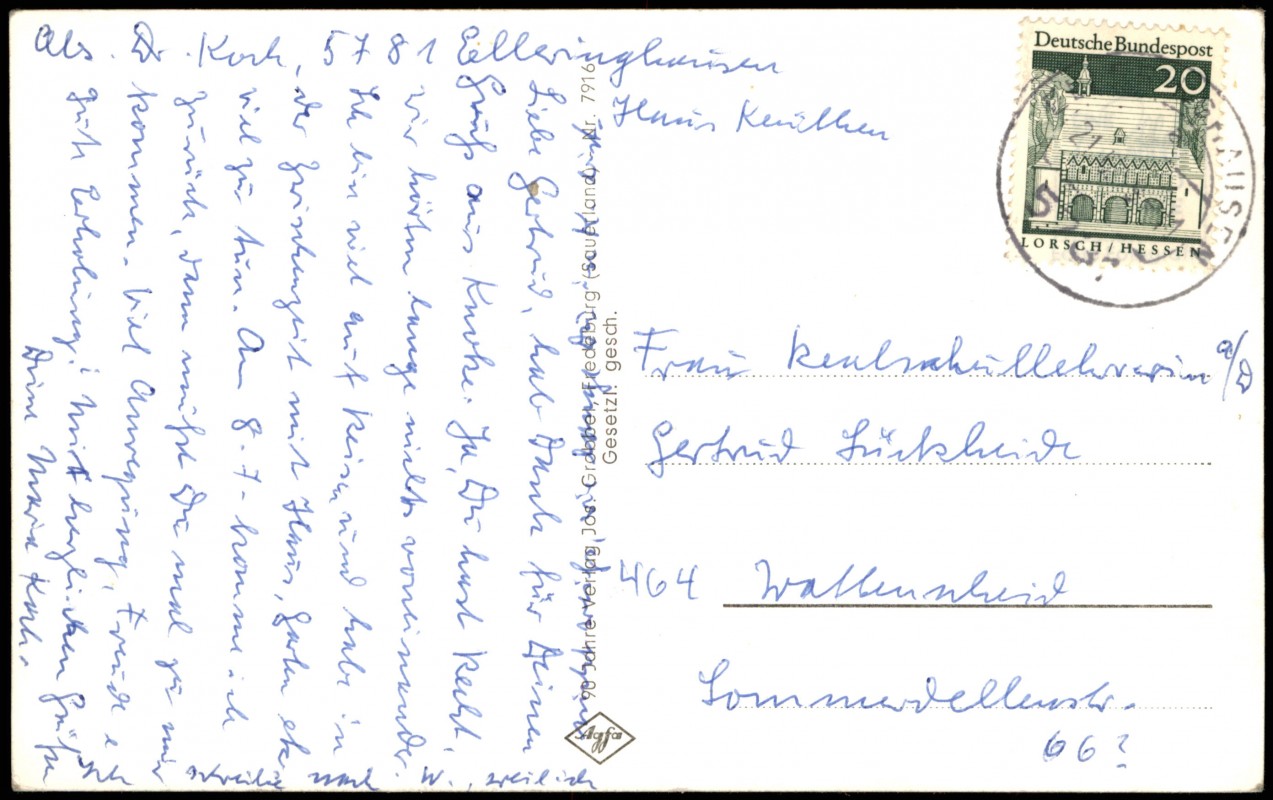 Abs. Dr. Koch, 5781 Elleringhausen
Haus Keuthen
Liebe Gertrud, hab Dank für Deinen
Gruß aus Knokke. Ja, Du hast Recht,
wir hörten lange nichts voneinander.
Ich bin viel auf Reisen und habe in
der Zwischenzeit mit Haus, Garten etc
viel zu tun. Am 8.7. komme ich
zurück, dann mußt Du mal zu mir
kommen. Viel Anregung, Freude u
gute Erholung! Mit herzlichen Grüßen
Deine Maria Koch.
schreibe nach W., weil ich
90 Jahre Verlag Jos. Grobbel, Fredeburg (Sauerland) Nr. 7916
Gesetzl. gesch.
Agfa
Deutsche Bundespost
20
LORSCH/HESSEN
Frau Realschullehrerin a/D
Gertrud Lückheide
464 Wattenscheid
Sommerdellenstr.
66?